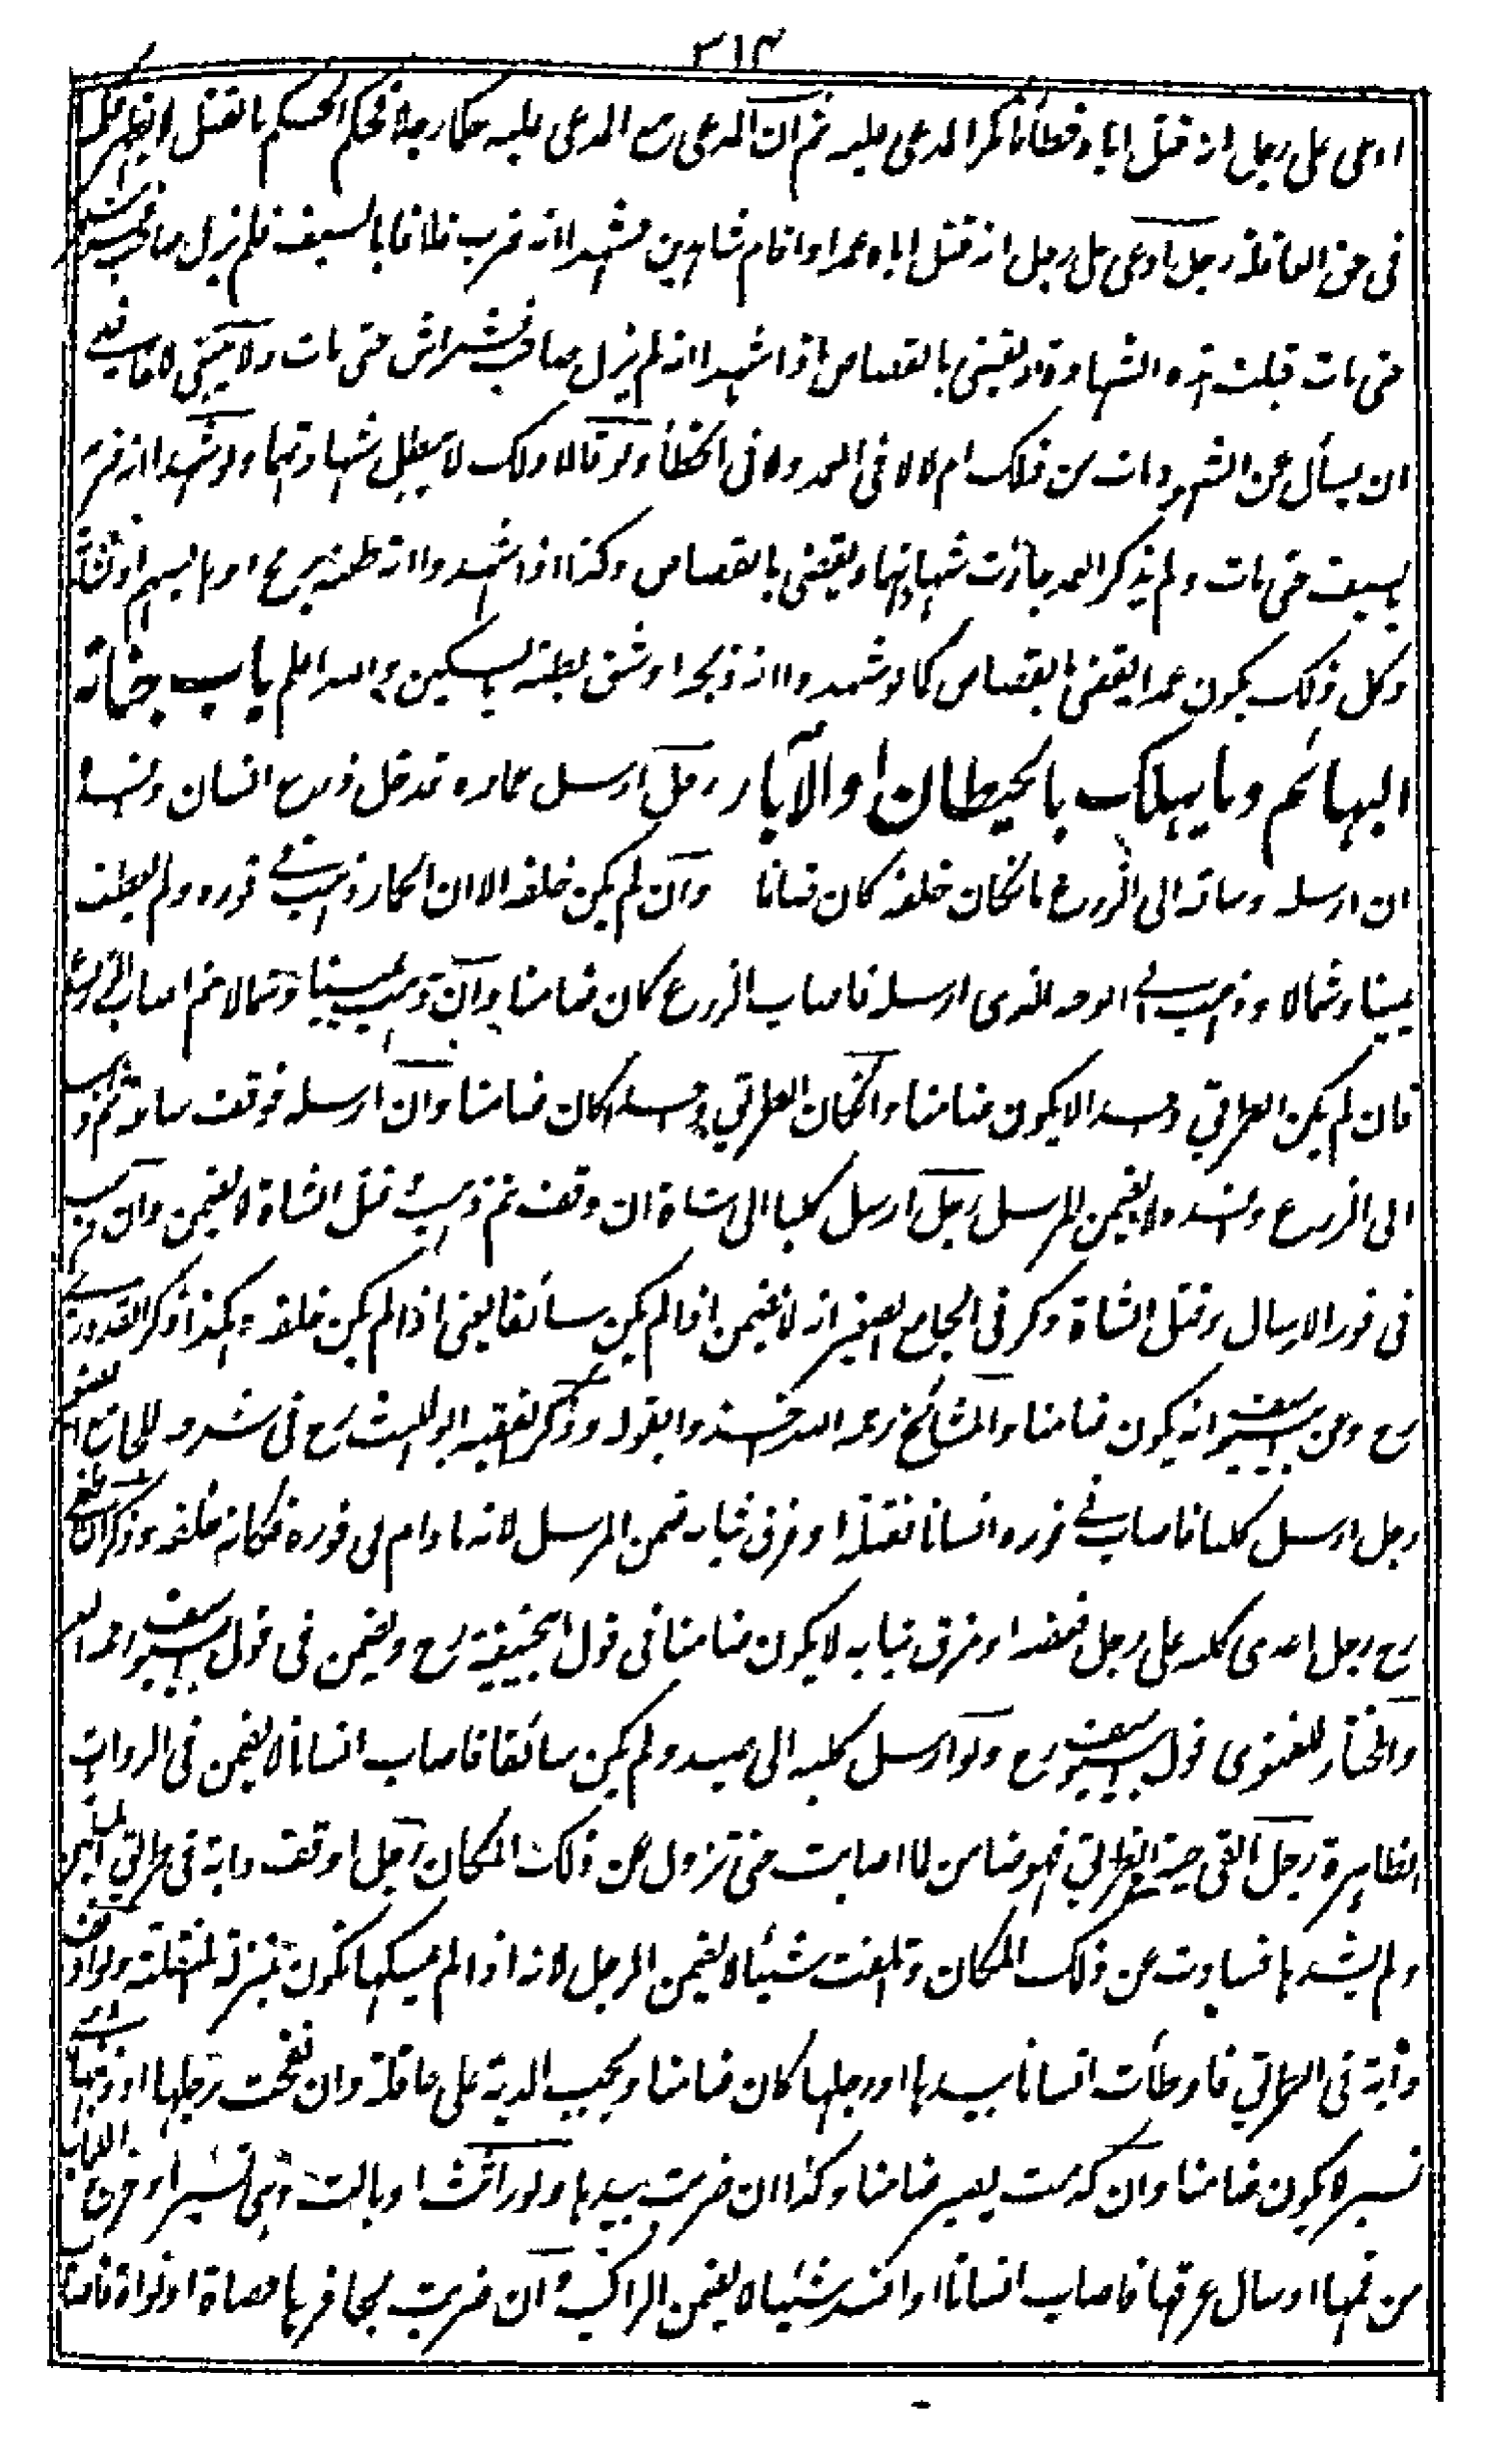 ٣١٤
ادعى على رجل انه قتل اباه خطأ فانكر المدعى عليه ثم ان المدعى مع المدعى عليه حكما رجلا فحكم الحكم بالقتل لا يظهر حكمه
فى حق العاقلة رجل ادعى على رجل انه قتل اباه عمدا واقام شاهدين فشهدا انه ضرب فلانا بالسيف فلم يزل صاحب فراش
حتى مات قبلت هذه الشهادة ويقضى بالقصاص اذا شهدا انه لم يزل صاحب فراش حتى مات ولا ينبغى للقاضى
ان يسأل عن الشهود مات من ذلك ام لا لا فى العمد ولا فى الخطأ ولو قالا ذلك لا يبطل شهادتهما ولو شهدا انه ضربه
بسيف حتى مات ولم يذكر العمد جازت شهادتهما ويقضى بالقصاص وكذا اذا شهدوا انه طعنه برمح او بالسهم او نشابة
وكل ذلك يكون عمدا يقضى بالقصاص كما لو شهدوا انه ذبحه او شق بطنه بالسكين والله اعلم باب جناية
البهائم وما يهلك بالحيطان والآبار رجل ارسل حماره فدخل زرع انسان وافسده
ان ارسله وساقه الى الزرع بان كان خلفه كان ضامنا وان لم يكن خلفه الا ان الحمار ذهب فى فوره ولم يعطف
يمينا وشمالا وذهب الى الوجه الذى ارسله فاصاب الزرع كان ضامنا وان ذهب يمينا وشمالا ثم اصاب الزرع
فان لم يكن الطريق واحدا لا يكون ضامنا وان كان الطريق واحدا كان ضامنا وان ارسله فوقف ساعة ثم ذهب
الى الزرع وافسده لا يضمن المرسل رجل ارسل كلبا الى شاة ان وقف ثم ذهب وقتل الشاة لا يضمن وان ذهب
فى فور الارسال وقتل الشاة ذكر فى الجامع الصغير انه لا يضمن اذا لم يكن سائقا يعنى اذا لم يكن خلفه وهكذا ذكر القدورى
رح وعن ابى يوسف انه يكون ضامنا والمشائخ رحمهم الله اخذوا بقوله وذكر الفقيه ابو الليث رح فى شرحه للجامع الصغير
رجل ارسل كلبا فاصاب فى فوره انسانا فقتله او مزق ثيابه ضمن المرسل لانه ما دام فى فوره فكانه خلفه وذكر الناطفى
رح رجل اغرى كلبه على رجل فعقره او مزق ثيابه لا يكون ضامنا فى قول ابى حنيفة رح ويضمن فى قول ابى يوسف رحمه الله
والمختار للفتوى قول ابى يوسف رح ولو ارسل كلبه الى صيد ولم يكن سائقا فاصاب انسانا لا يضمن فى الروايات
الظاهرة رجل القى حية فى الطريق فهو ضامن لما اصابت حتى تزول عن ذلك المكان رجل اوقف دابة فى طريق المسلمين
ولم يشدها فسارت عن ذلك المكان وتلفت شيئا لا يضمن الرجل لانه اذا لم يمسكها تكون بمنزلة المنفلتة ولو اوقف
دابة فى الطريق فاوطأت انسانا بيدها او رجلها كان ضامنا ويجب الدية على عاقلته وان نفحت برجلها او ذنبها وهى
تسير لا يكون ضامنا وان كدمت يصير ضامنا وكذا ان ضربت بيدها ولو راثت او بالت وهى تسير او خرج اللعاب
من فمها او سال عرقها فاصاب انسانا او افسد شيئا لا يضمن الراكب وان ضربت بحافرها حصاة او نواة فاصاب